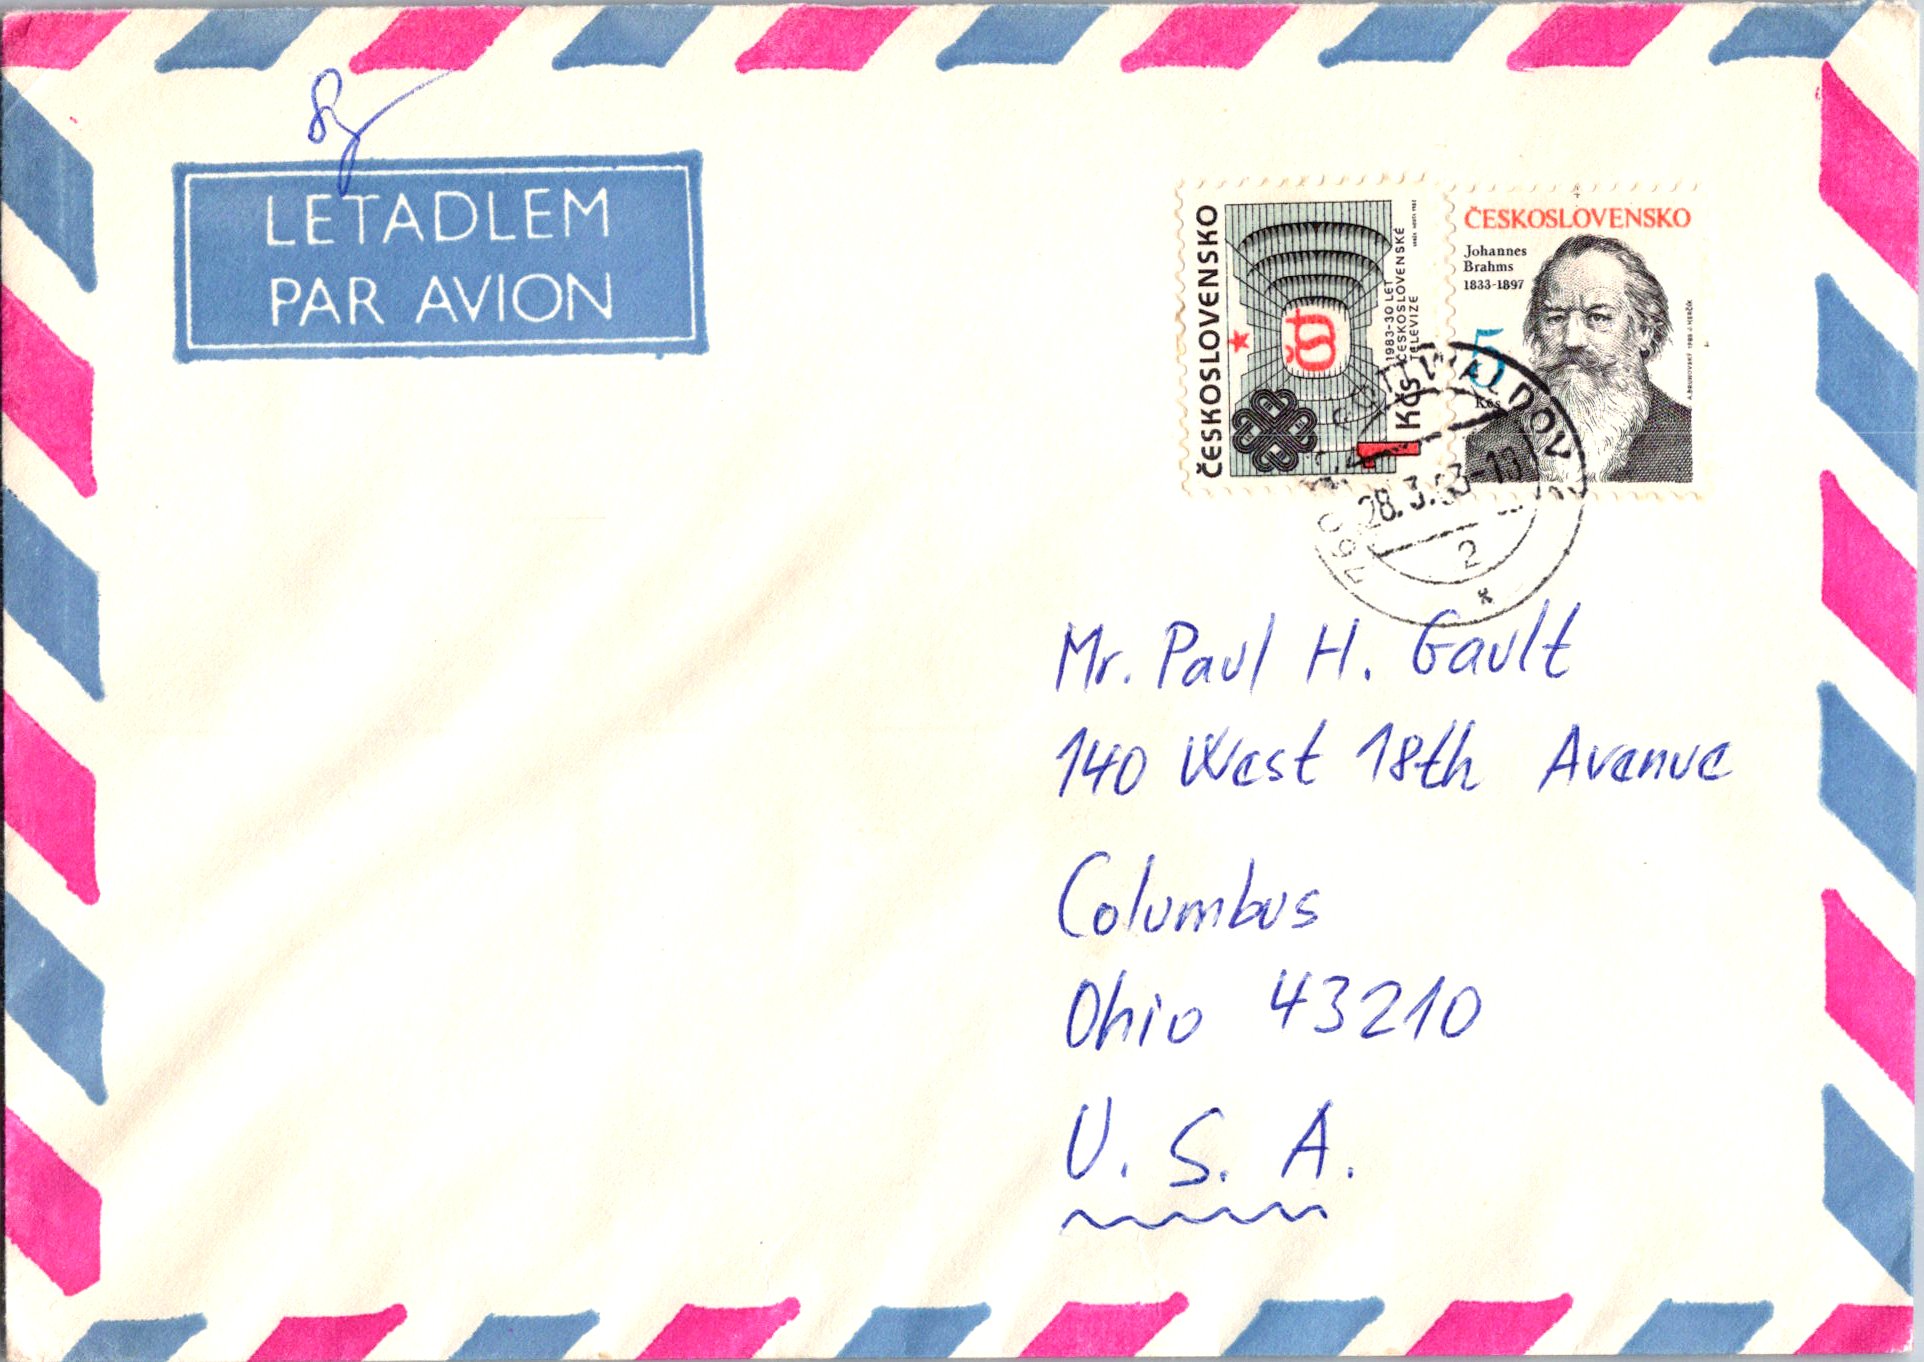 LETADLEM
PAR AVION
ČESKOSLOVENSKO
1983-30 LET
ČESKOSLOVENSKÉ
TELEVIZE
1 Kčs
ČESKOSLOVENSKO
Johannes
Brahms
1833-1897
5
Kčs
GOTTWALDOV
28.3.83-10
2
760
Mr. Paul H. Gault
140 West 18th Avenue
Columbus
Ohio 43210
U. S. A.